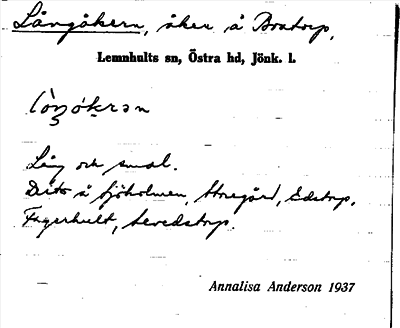 Långåkern, åker å Boatorp,
Lemnhults sn, Östra hd, Jönk. l.
Lång och smal.
Dito å Sjöholmen, Storegård, Edstorp,
Fagerhult,
Annalisa Anderson 1937